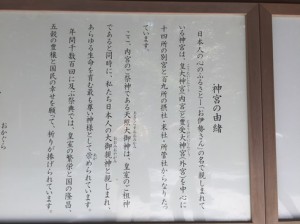 神宮の由緒
日本人の心のふるさと―「お伊勢さん」の名で親しまれて
いる神宮は、皇大神宮(内宮)と豊受大神宮(外宮)を中心に
十四所の別宮と百九所の摂社・末社・所管社からなりたっ
ています。
ここ、内宮のご祭神である天照大御神は、皇室のご祖神
であると同時に、私たち日本人の大御親神と親しまれ、
あらゆる生命を育む最も尊い神様として崇められています。
年間千数百回に及ぶ祭典では、皇室の繁栄と国の隆昌、
五穀の豊穰と国民の幸せを願って、祈りが捧げられています。
おかぐら